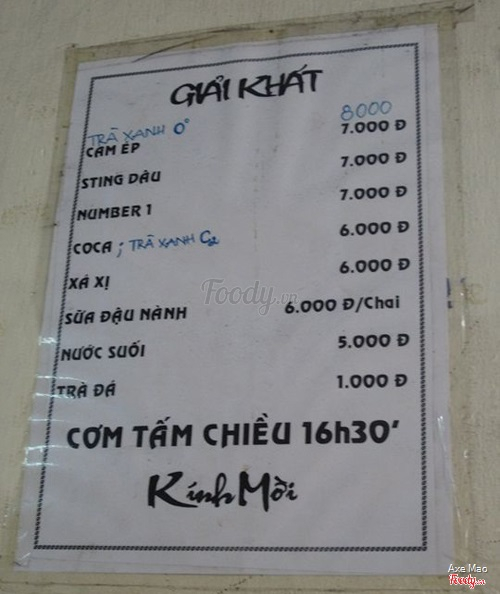 GIẢI KHÁT
TRÀ XANH 0° 8000
CAM ÉP 7.000 Đ
STING DÂU 7.000 Đ
NUMBER 1 7.000 Đ
COCA ; TRÀ XANH C2 6.000 Đ
XÁ XỊ 6.000 Đ
SỮA ĐẬU NÀNH 6.000 Đ/Chai
NƯỚC SUỐI 5.000 Đ
TRÀ ĐÁ 1.000 Đ
CƠM TẤM CHIỀU 16h30'
Kính Mời
Foody.vn
Axe Mao
Foody.vn